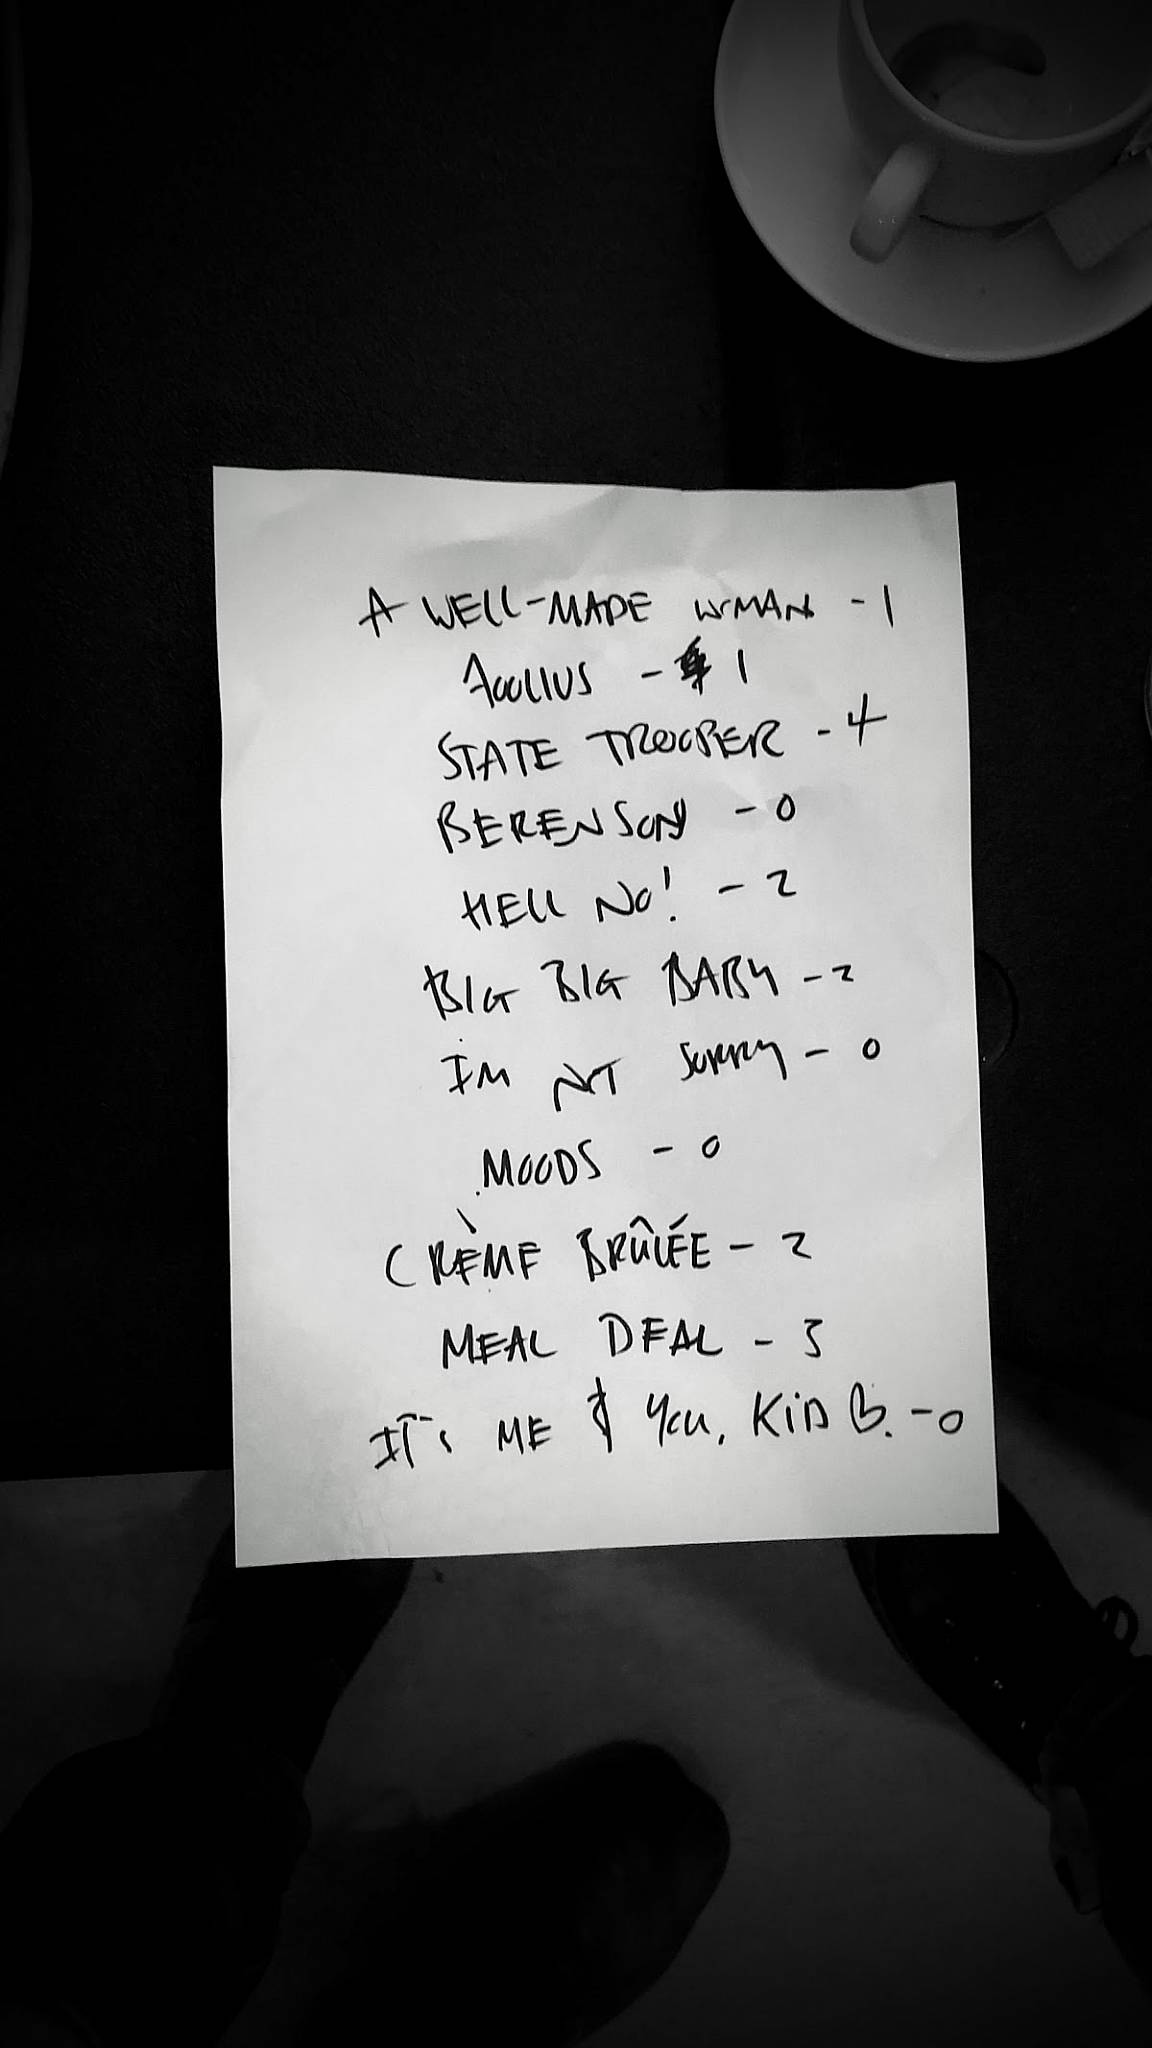 A WELL-MADE WOMAN - 1
- 1
STATE TROOPER - 4
BERENSON - 0
HELL NO! - 2
BIG BIG BABY - 2
I'M NOT SORRY - 0
MOODS - 0
CRÈME BRÛLÉE - 2
MEAL DEAL - 3
IT'S ME & YOU, KID B. - 0